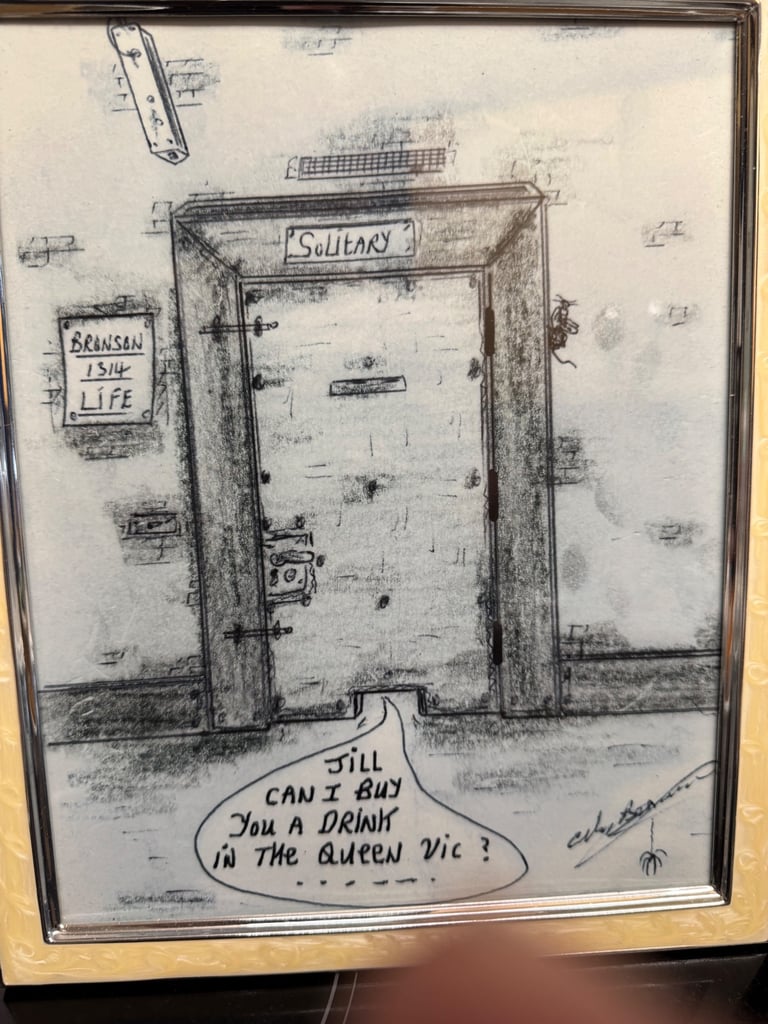 SOLITARY
BRONSON
1314
LIFE
JILL
CAN I BUY
YOU A DRINK
IN THE QUEEN VIC ?